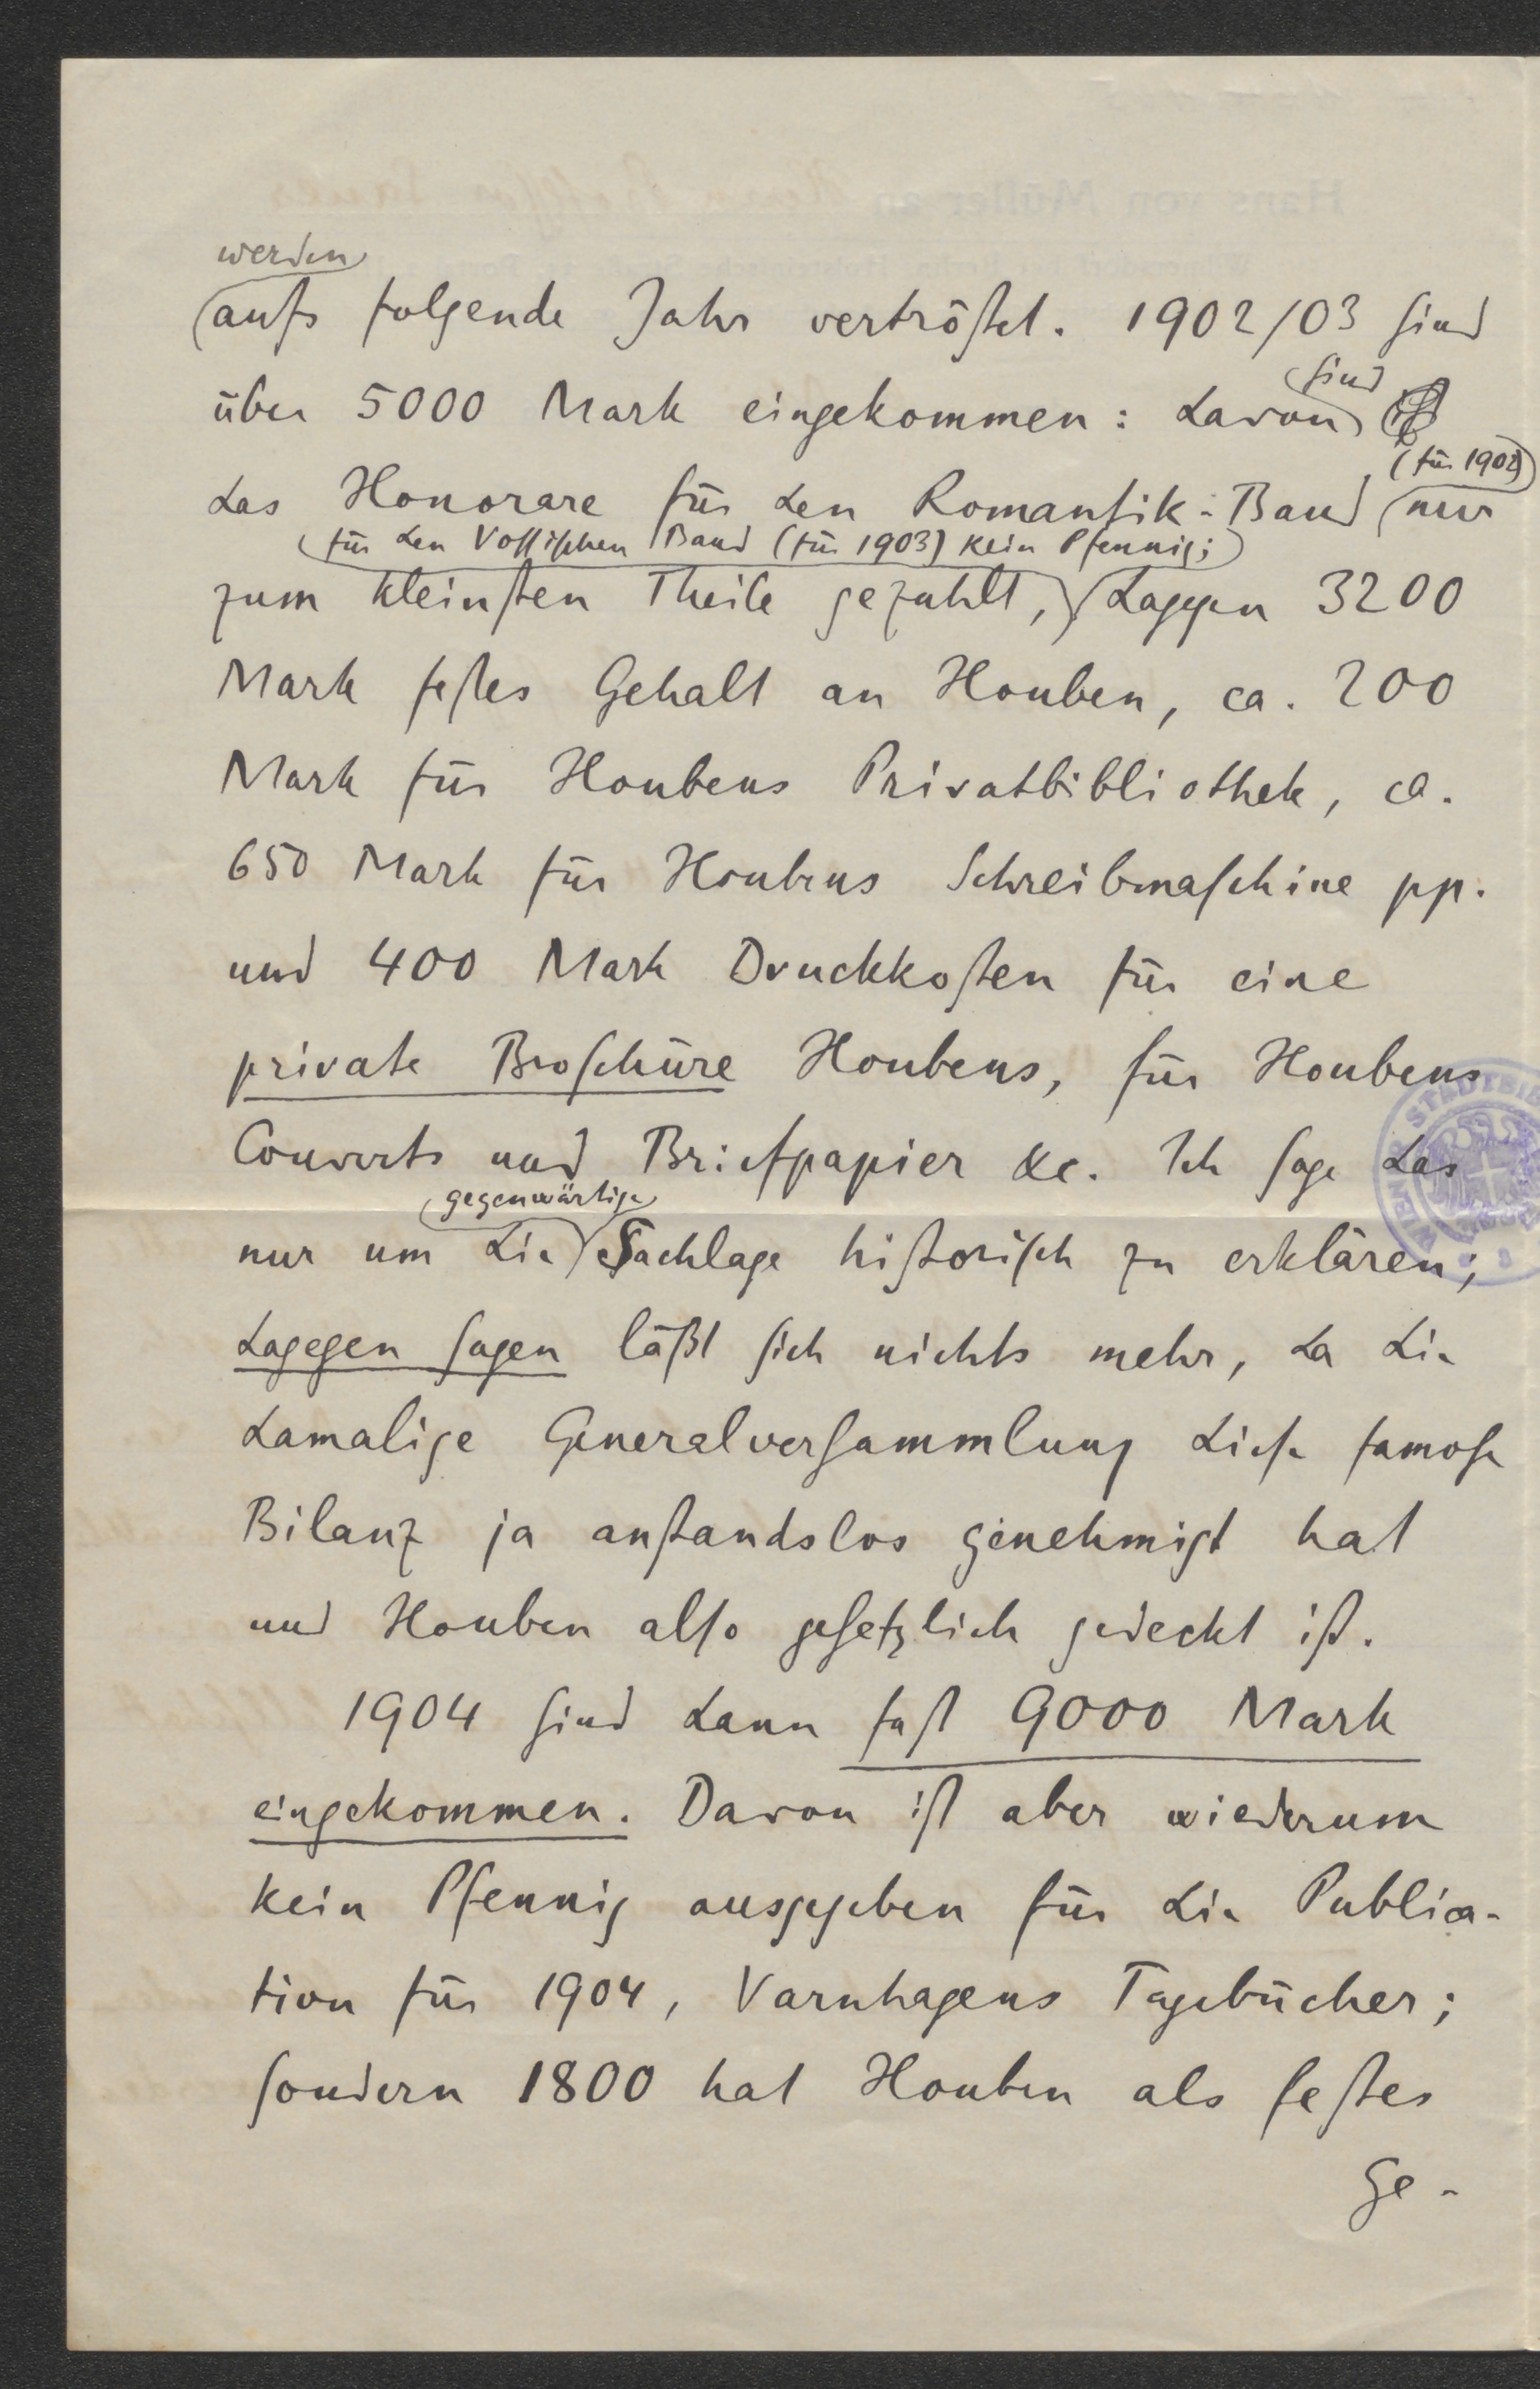 werden
aufs folgende Jahr vertröstet. 1902/03 sind
sind
über 5000 Mark eingekommen: davon
(für 1902)
das Honorare für den Romantik-Band nur
für den Vossischen Band (für 1903) kein Pfennig;
zum kleinsten Theile gezahlt, dagegen 3200
Mark festes Gehalt an Houben, ca. 200
Mark für Houbens Privatbibliothek, ca.
650 Mark für Houbens Schreibmaschine pp.
und 400 Mark Druckkosten für eine
private Broschüre Houbens, für Houbens
Couverts und Briefpapier &c. Ich sage das
gegenwärtige
nur um die Sachlage historisch zu erklären;
dagegen sagen läßt sich nichts mehr, da die
damalige Generalversammlung diese famose
Bilanz ja anstandslos genehmigt hat
und Houben also gesetzlich gedeckt ist.
1904 sind dann fast 9000 Mark
eingekommen. Davon ist aber wiederum
kein Pfennig ausgegeben für die Publica-
tion für 1904, Varnhagens Tagebücher;
sondern 1800 hat Houben als festes
Ge-